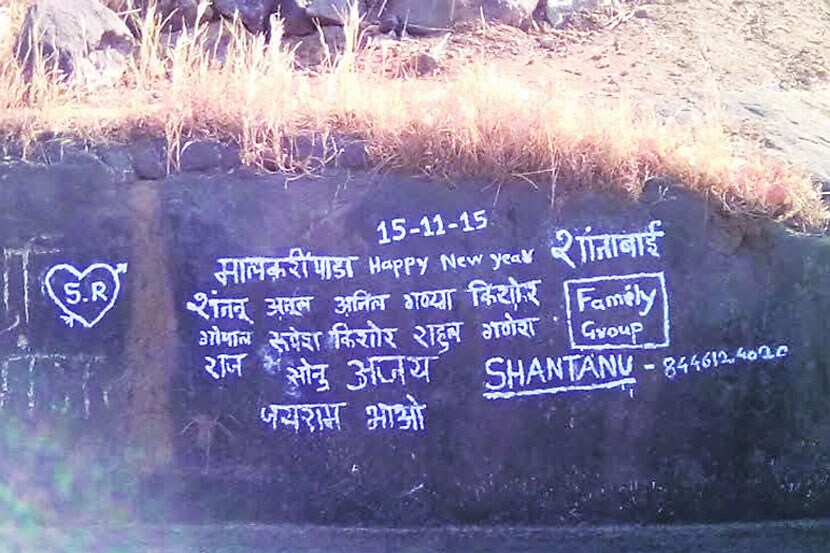 15-11-15
मालकरीपाडा Happy New year शांताबाई
S.R
शंतनू अतुल अनिल गण्या किशोर
Family
Group
गोपाल रुपेश किशोर राहुल गणेश
राज सोनु अजय
SHANTANU - 8446124020
जयराम भाओ